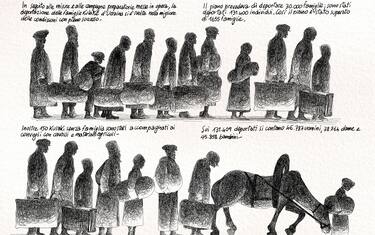 In seguito alle misure e alla campagna preparatoria messe in opera, la
deportazione delle famiglie Kulak d'Ucraina si è svolta nella migliore
delle condizioni con pieno successo.
Il piano prevedeva di deportare 30.000 famiglie; sono stati
deportati 131.409 individui. Così il piano è stato superato
di 1655 famiglie.
Inoltre 150 Kulak senza famiglia sono stati accompagnati ai
convogli con cavalli e materiali agricoli.
Sui 131.409 deportati si contano 46.787 uomini, 38.764 donne e
45.858 bambini.